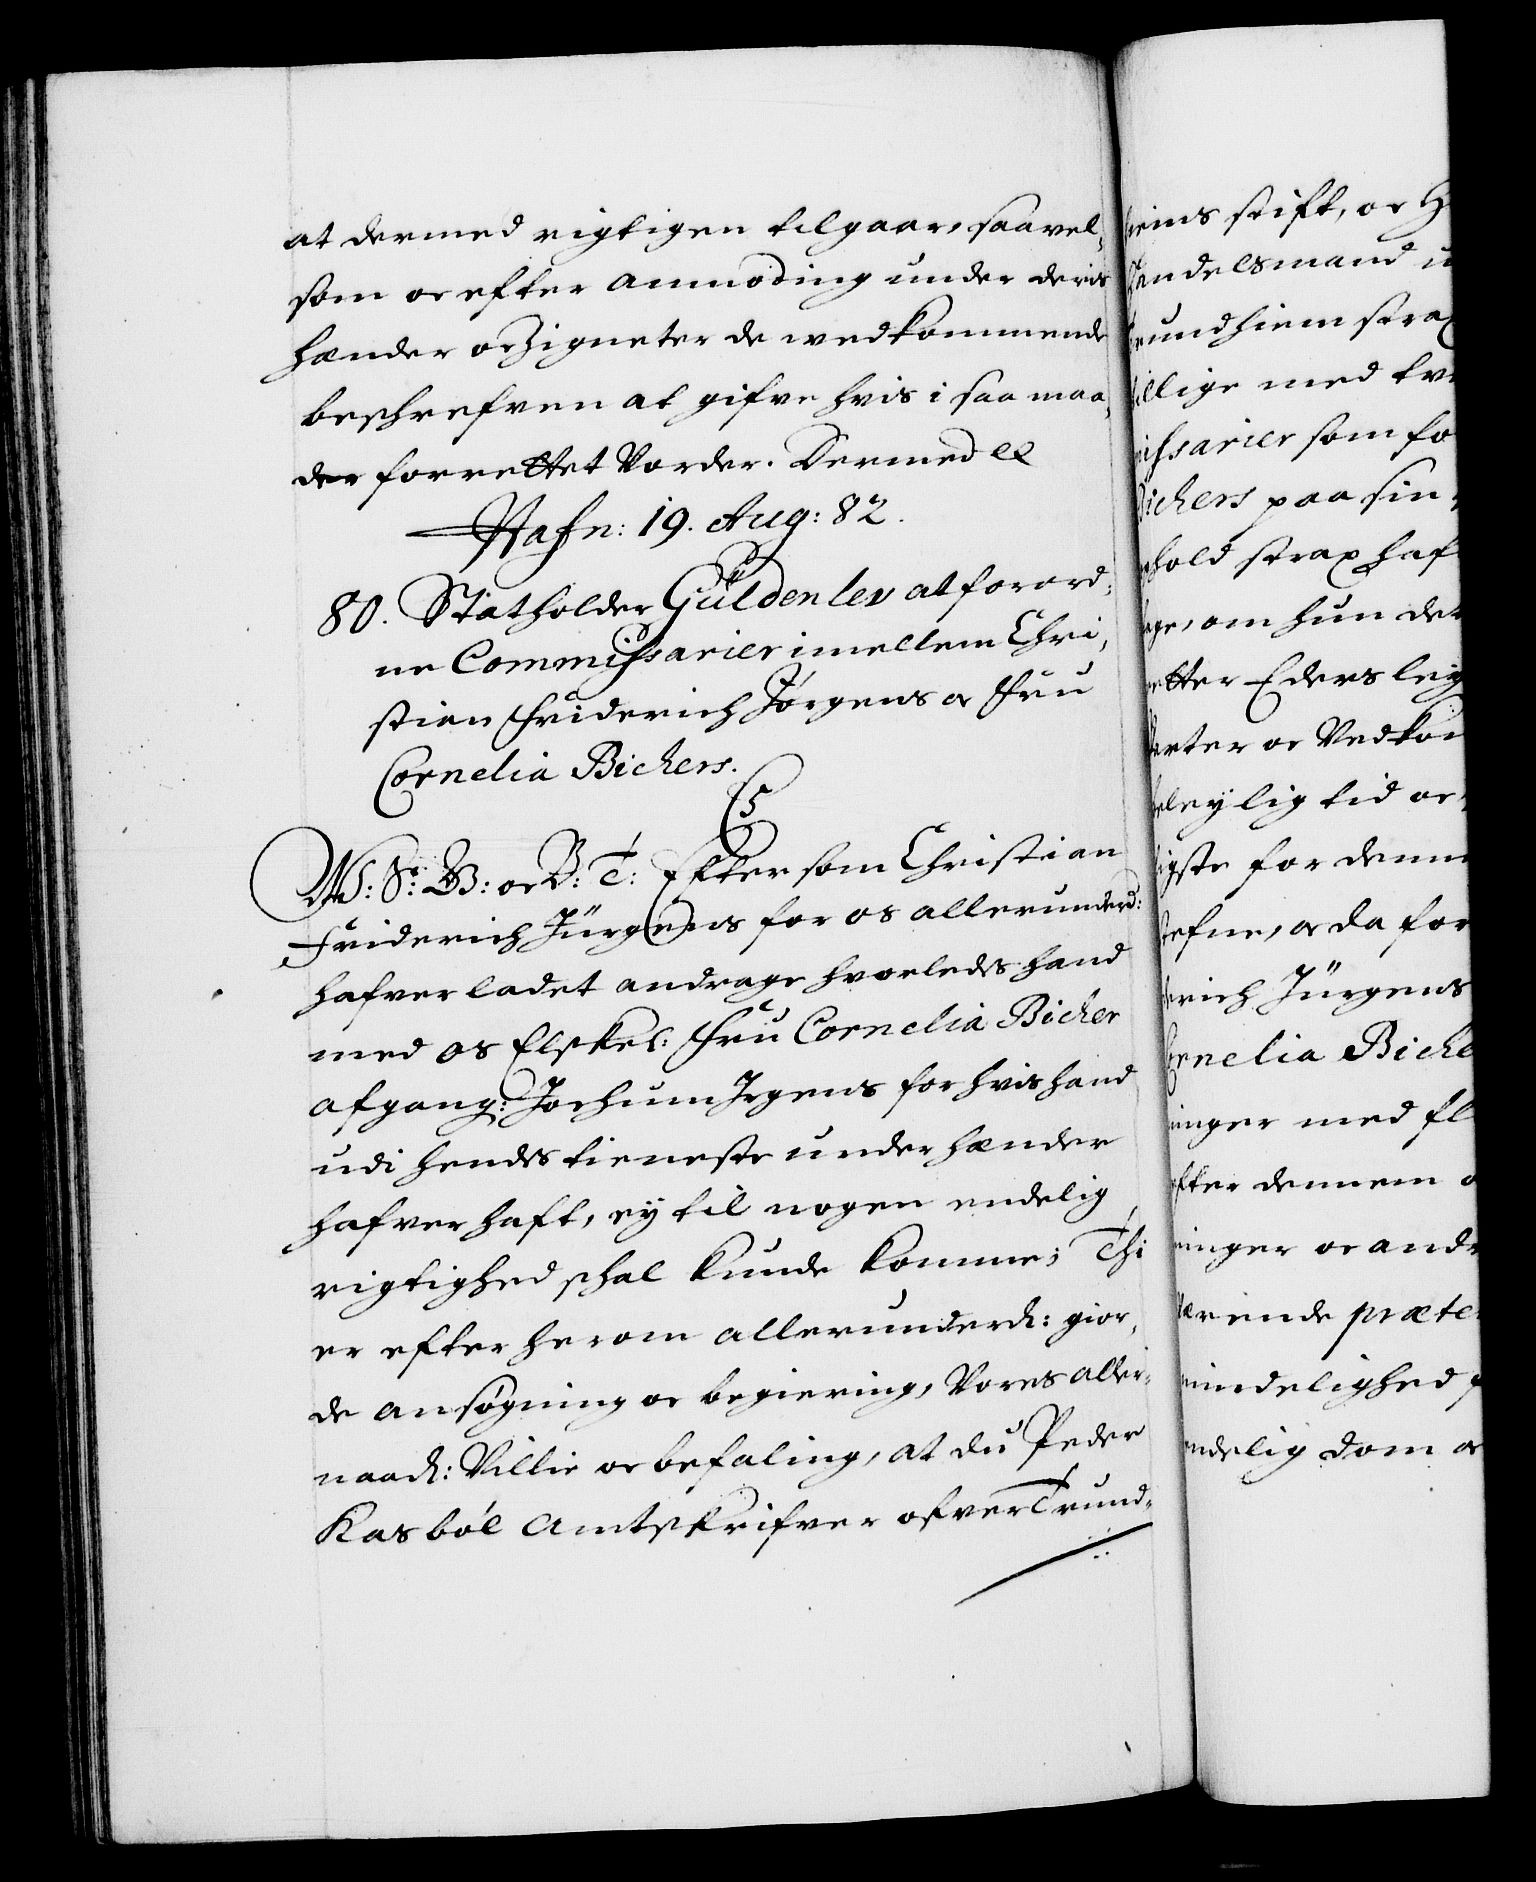 at dermed rigtigen tilgaar, saavel-
som oc efter anmoding under deris
hænder oc Zigneter de wedkommende
beschrefven at gifve hvis i saa maa-
der forrettet Vorder. Dermed etc
Hafn: 19. Aug: 82.
80. Statholder Güldenlev at forord-
ne Commissarier imellem Chri-
stian Friderich Jörgens oc Fru
Cornelia Bichers.
C5
W: S: G: oc B: T: Eftersom Christian
Friderich Jürgens for os allerunderd:
hafver ladet andrage hvorledes hand
med os Elskel: Fru Cornelia Bicher
afgang: Jochum Irgens for hvis hand
udi hendes tieneste under hænder
hafver haft, ey til nogen endelig
rigtighed schal kunde komme; Thi
er efter herom allerunderd: gior-
de ansøgning oc begiering, Vores aller-
naad: Villie oc befaling, at du Peder
Kasböl Amtskrifver ofver Trund-
heims stift, oc H
handelsmand u
Trundhiem strax
tillige med tve
missarier som fo
Bichers paa sin
hold strax haf
age, om hun det
retter Eders ley
Parter oc Vedkom
beleylig tid oc
igste for denne
stefne, oc da for
derich Jürgens
Cornelia Biche
inger med fl
efter dennem o
ninger oc andr
værende præte
mindelighed f
endelig dom oc